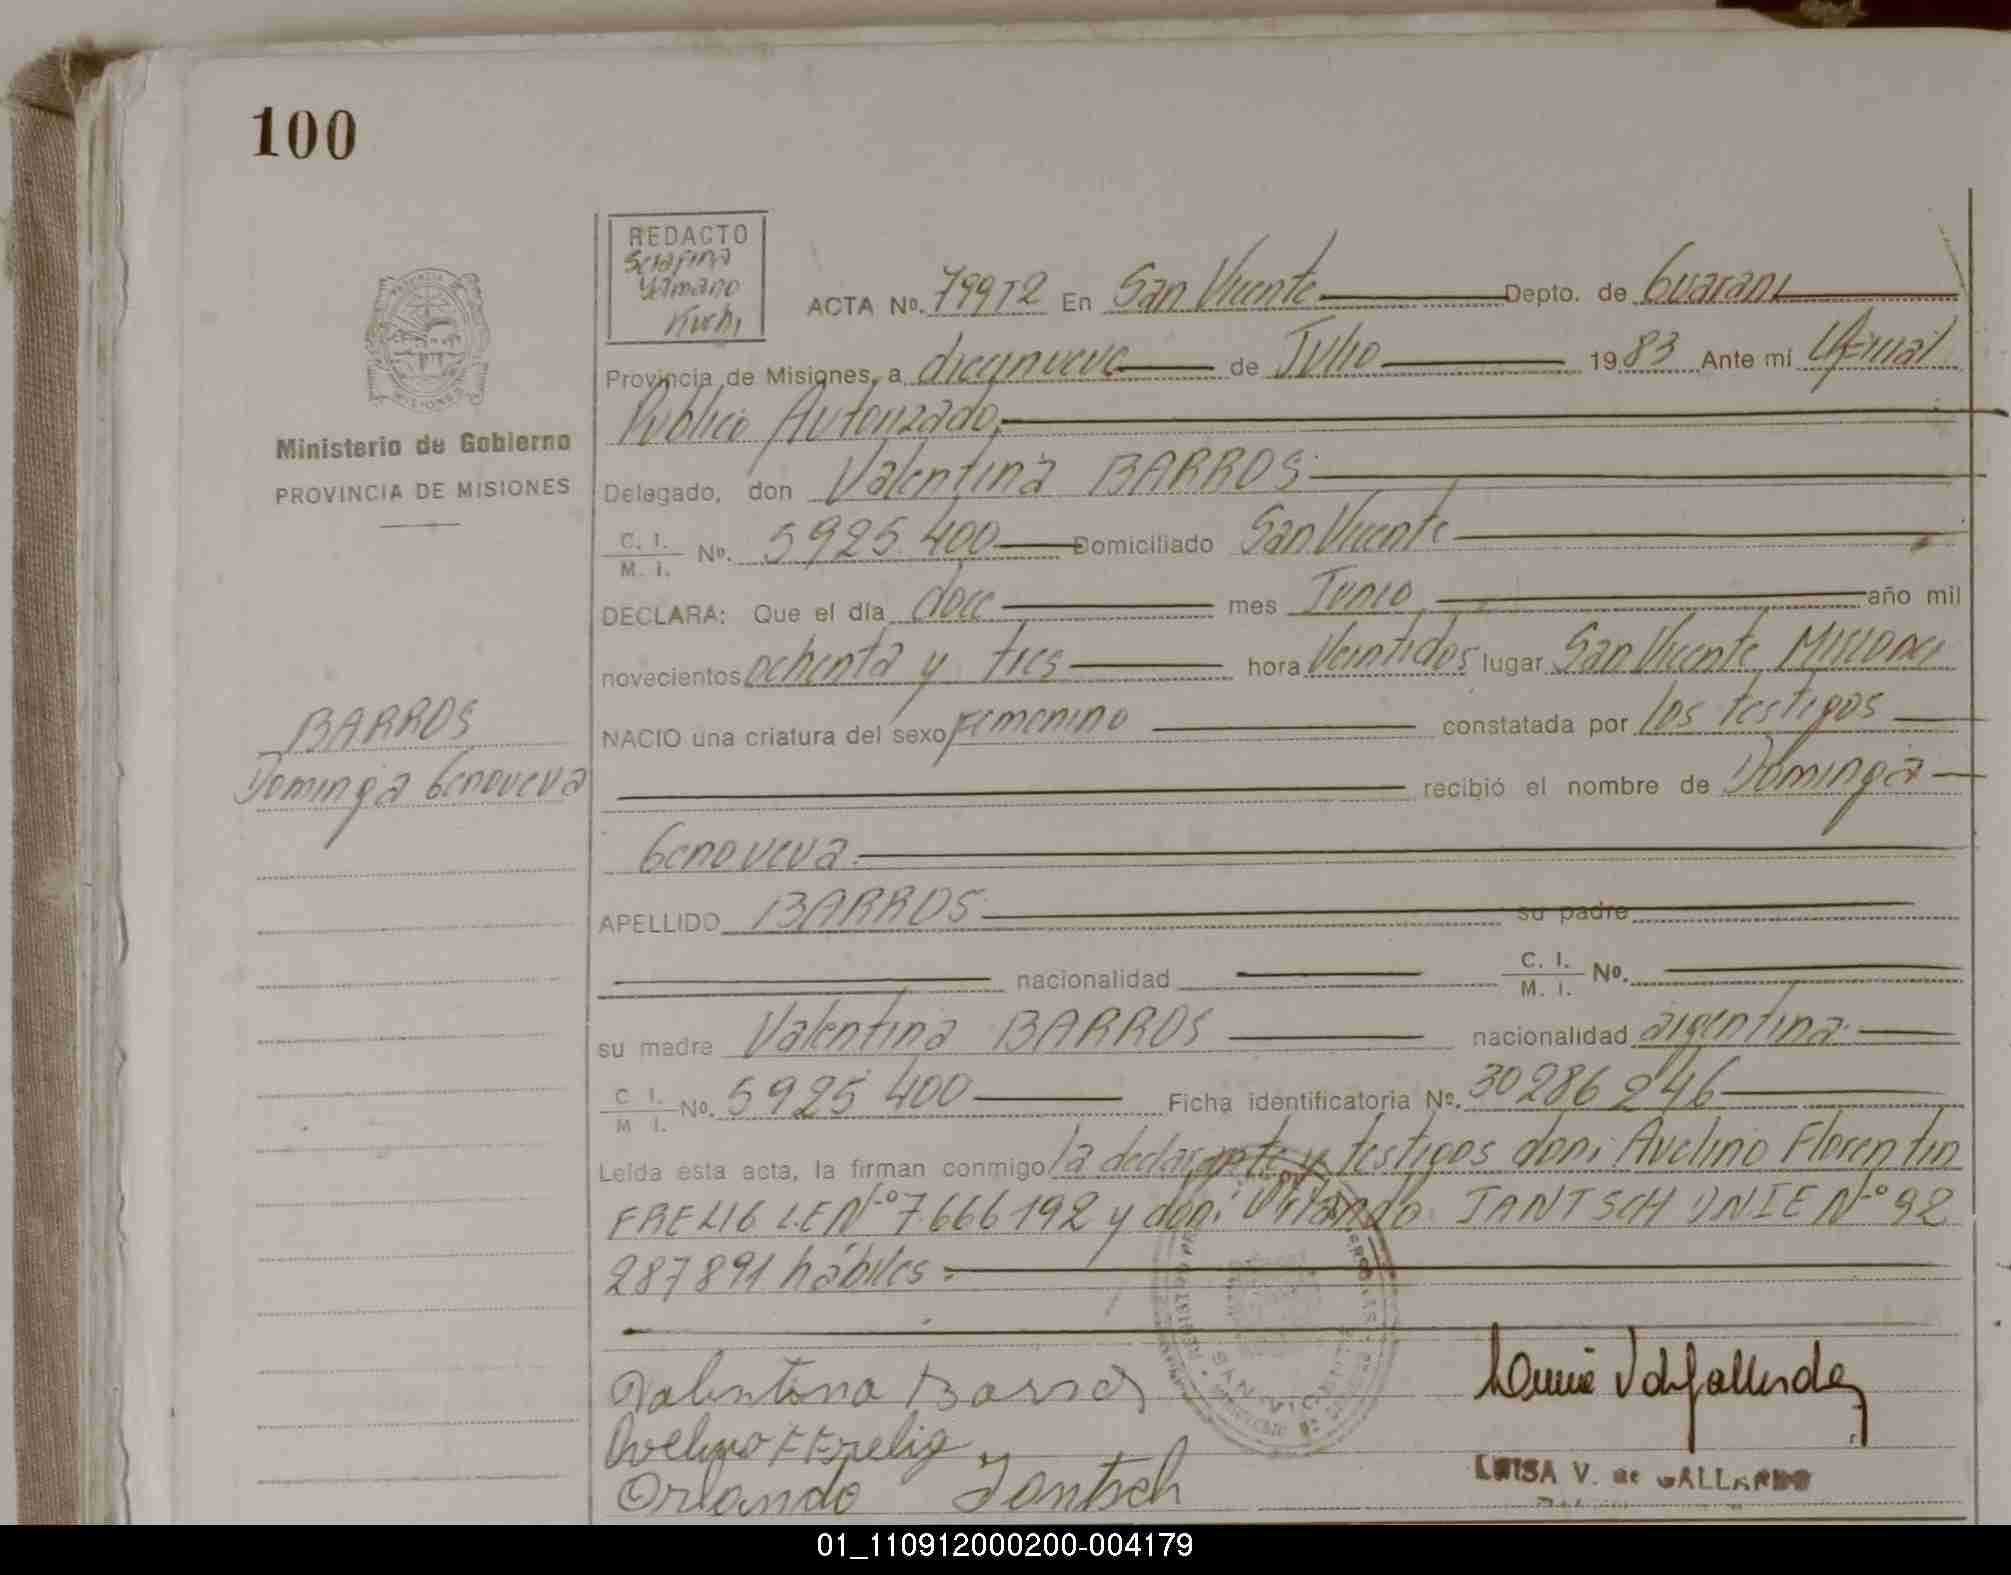 100
REDACTO
Serafina
Yamano
Kuchi
ACTA Nº. 799T2 En San Vicente Depto. de Guaraní
Provincia de Misiones, a diecinueve de Julio 1983 Ante mi Oficial
Público Autorizado,
Ministerio de Gobierno
PROVINCIA DE MISIONES
Delegado, don Valentina BARROS
C. I.
M. I. Nº. 5925.400 Domiciliado San Vicente
DECLARA: Que el día doce mes Junio año mil
novecientos ochenta y tres hora Veintidos lugar San Vicente Misiones
NACIO una criatura del sexo femenino constatada por los testigos
BARROS
Dominga Genoveva
recibió el nombre de Dominga
Genoveva.
APELLIDO BARROS su padre
nacionalidad C. I.
M. I. Nº.
su madre Valentina BARROS nacionalidad argentina
C. I.
M. I. Nº. 5925.400 Ficha identificatoria Nº. 30286246
Leída esta acta, la firman conmigo la declarante y testigos don: Avelino Florentin
FRELIG L.E Nº 7.666192 y don: Orlando JANTSCH DNIE Nº 92
287891 hábiles.
Valentina Barros
Avelino F Frelig
Orlando Jantsch
LUISA V. de GALLARDO
01_110912000200-004179